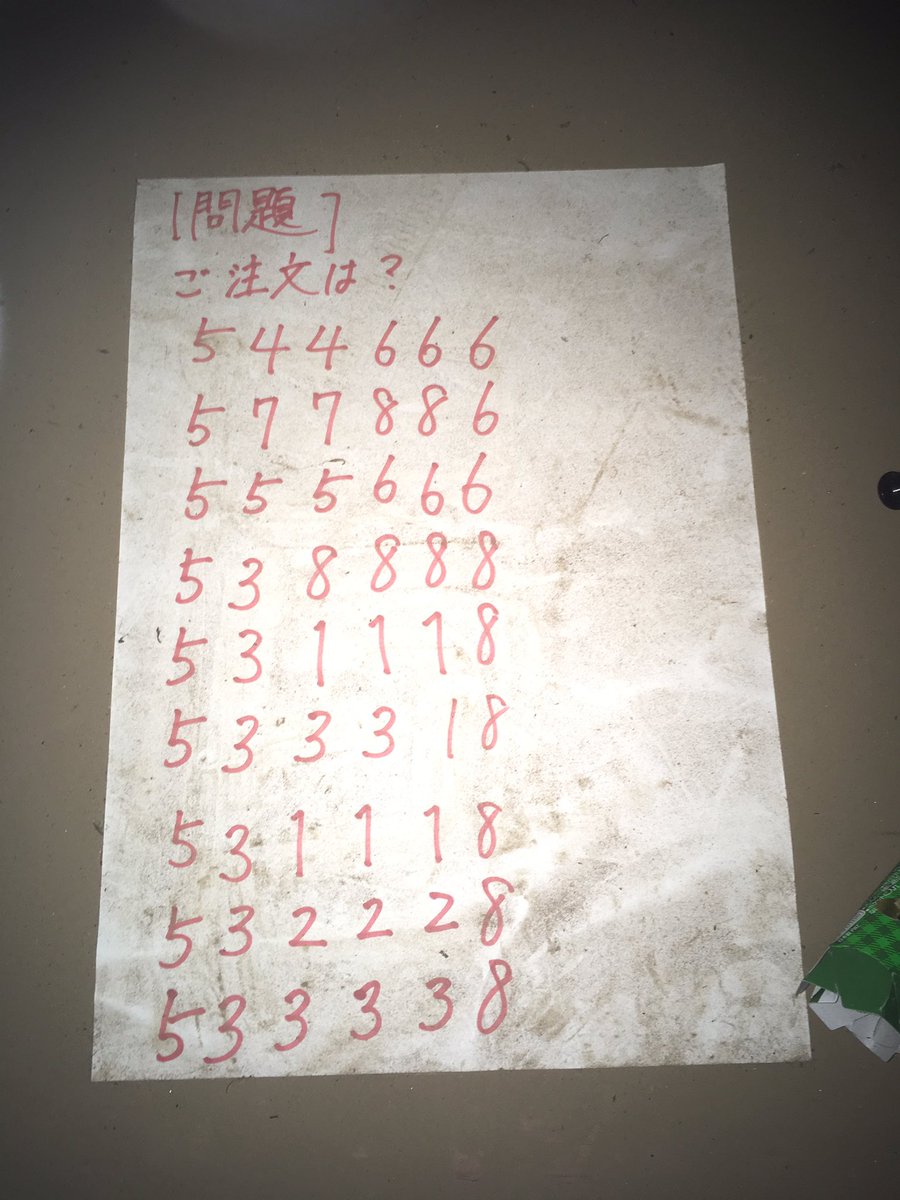 [問題]
ご注文は?
5 4 4 6 6 6
5 7 7 8 8 6
5 5 5 6 6 6
5 3 8 8 8 8
5 3 1 1 1 8
5 3 3 3 1 8
5 3 1 1 1 8
5 3 2 2 2 8
5 3 3 3 3 8